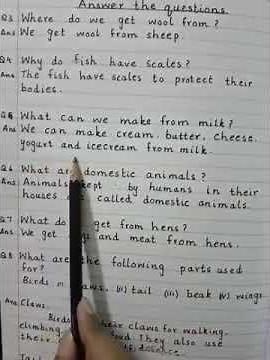 Answer the questions.
Q3 Where do we get wool from?
Ans We get wool from sheep.
Q4 Why do fish have scales?
Ans The fish have scales to protect their
bodies.
Q5 What can we make from milk?
Ans We can make cream, butter, cheese,
yogurt and icecream from milk.
Q6 What are domestic animals?
Ans Animals kept by humans in their
houses called domestic animals.
Q7 What do get from hens?
Ans We get and meat from hens.
Q8 What are the following parts used
for?
Birds (ii) tail (iii) beak (iv) wings
Ans Claws
Birds their claws for walking,
climbing They also use
their